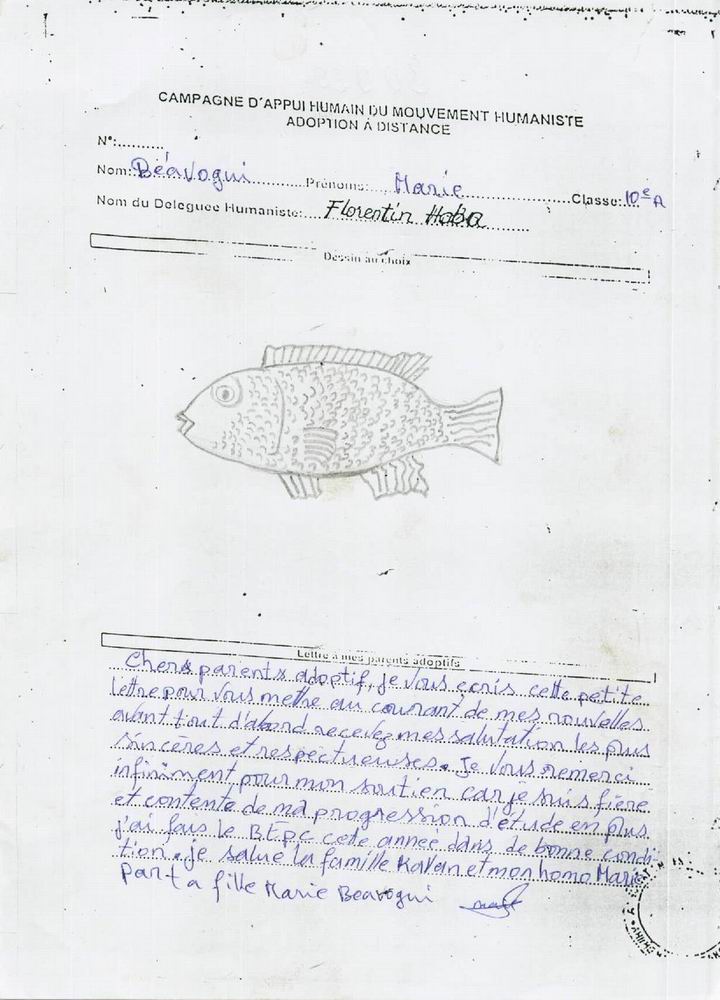 CAMPAGNE D'APPUI HUMAIN DU MOUVEMENT HUMANISTE
ADOPTION À DISTANCE
N°:..........
Nom: Béavogui Prénoms: Marie Classe: 10e A
Nom du Deleguee Humaniste: Florentin Haba
Dessin au choix
Lettre à mes parents adoptifs
Chers parents adoptif, je vous ecris cette petite
lettre pour vous mettre au courant de mes nouvelles
avant tout d'abord recevez mes salutation les plus
sincères et respectueuses. Je vous remerci
infiniment pour mon soutien car je suis fière
et contente de ma progression d'étude en plus
j'ai fais le BEPC cette année dans de bonne condi-
tion. je salue la famille Kavan et mon homo Marie
par ta fille Marie Beavogui